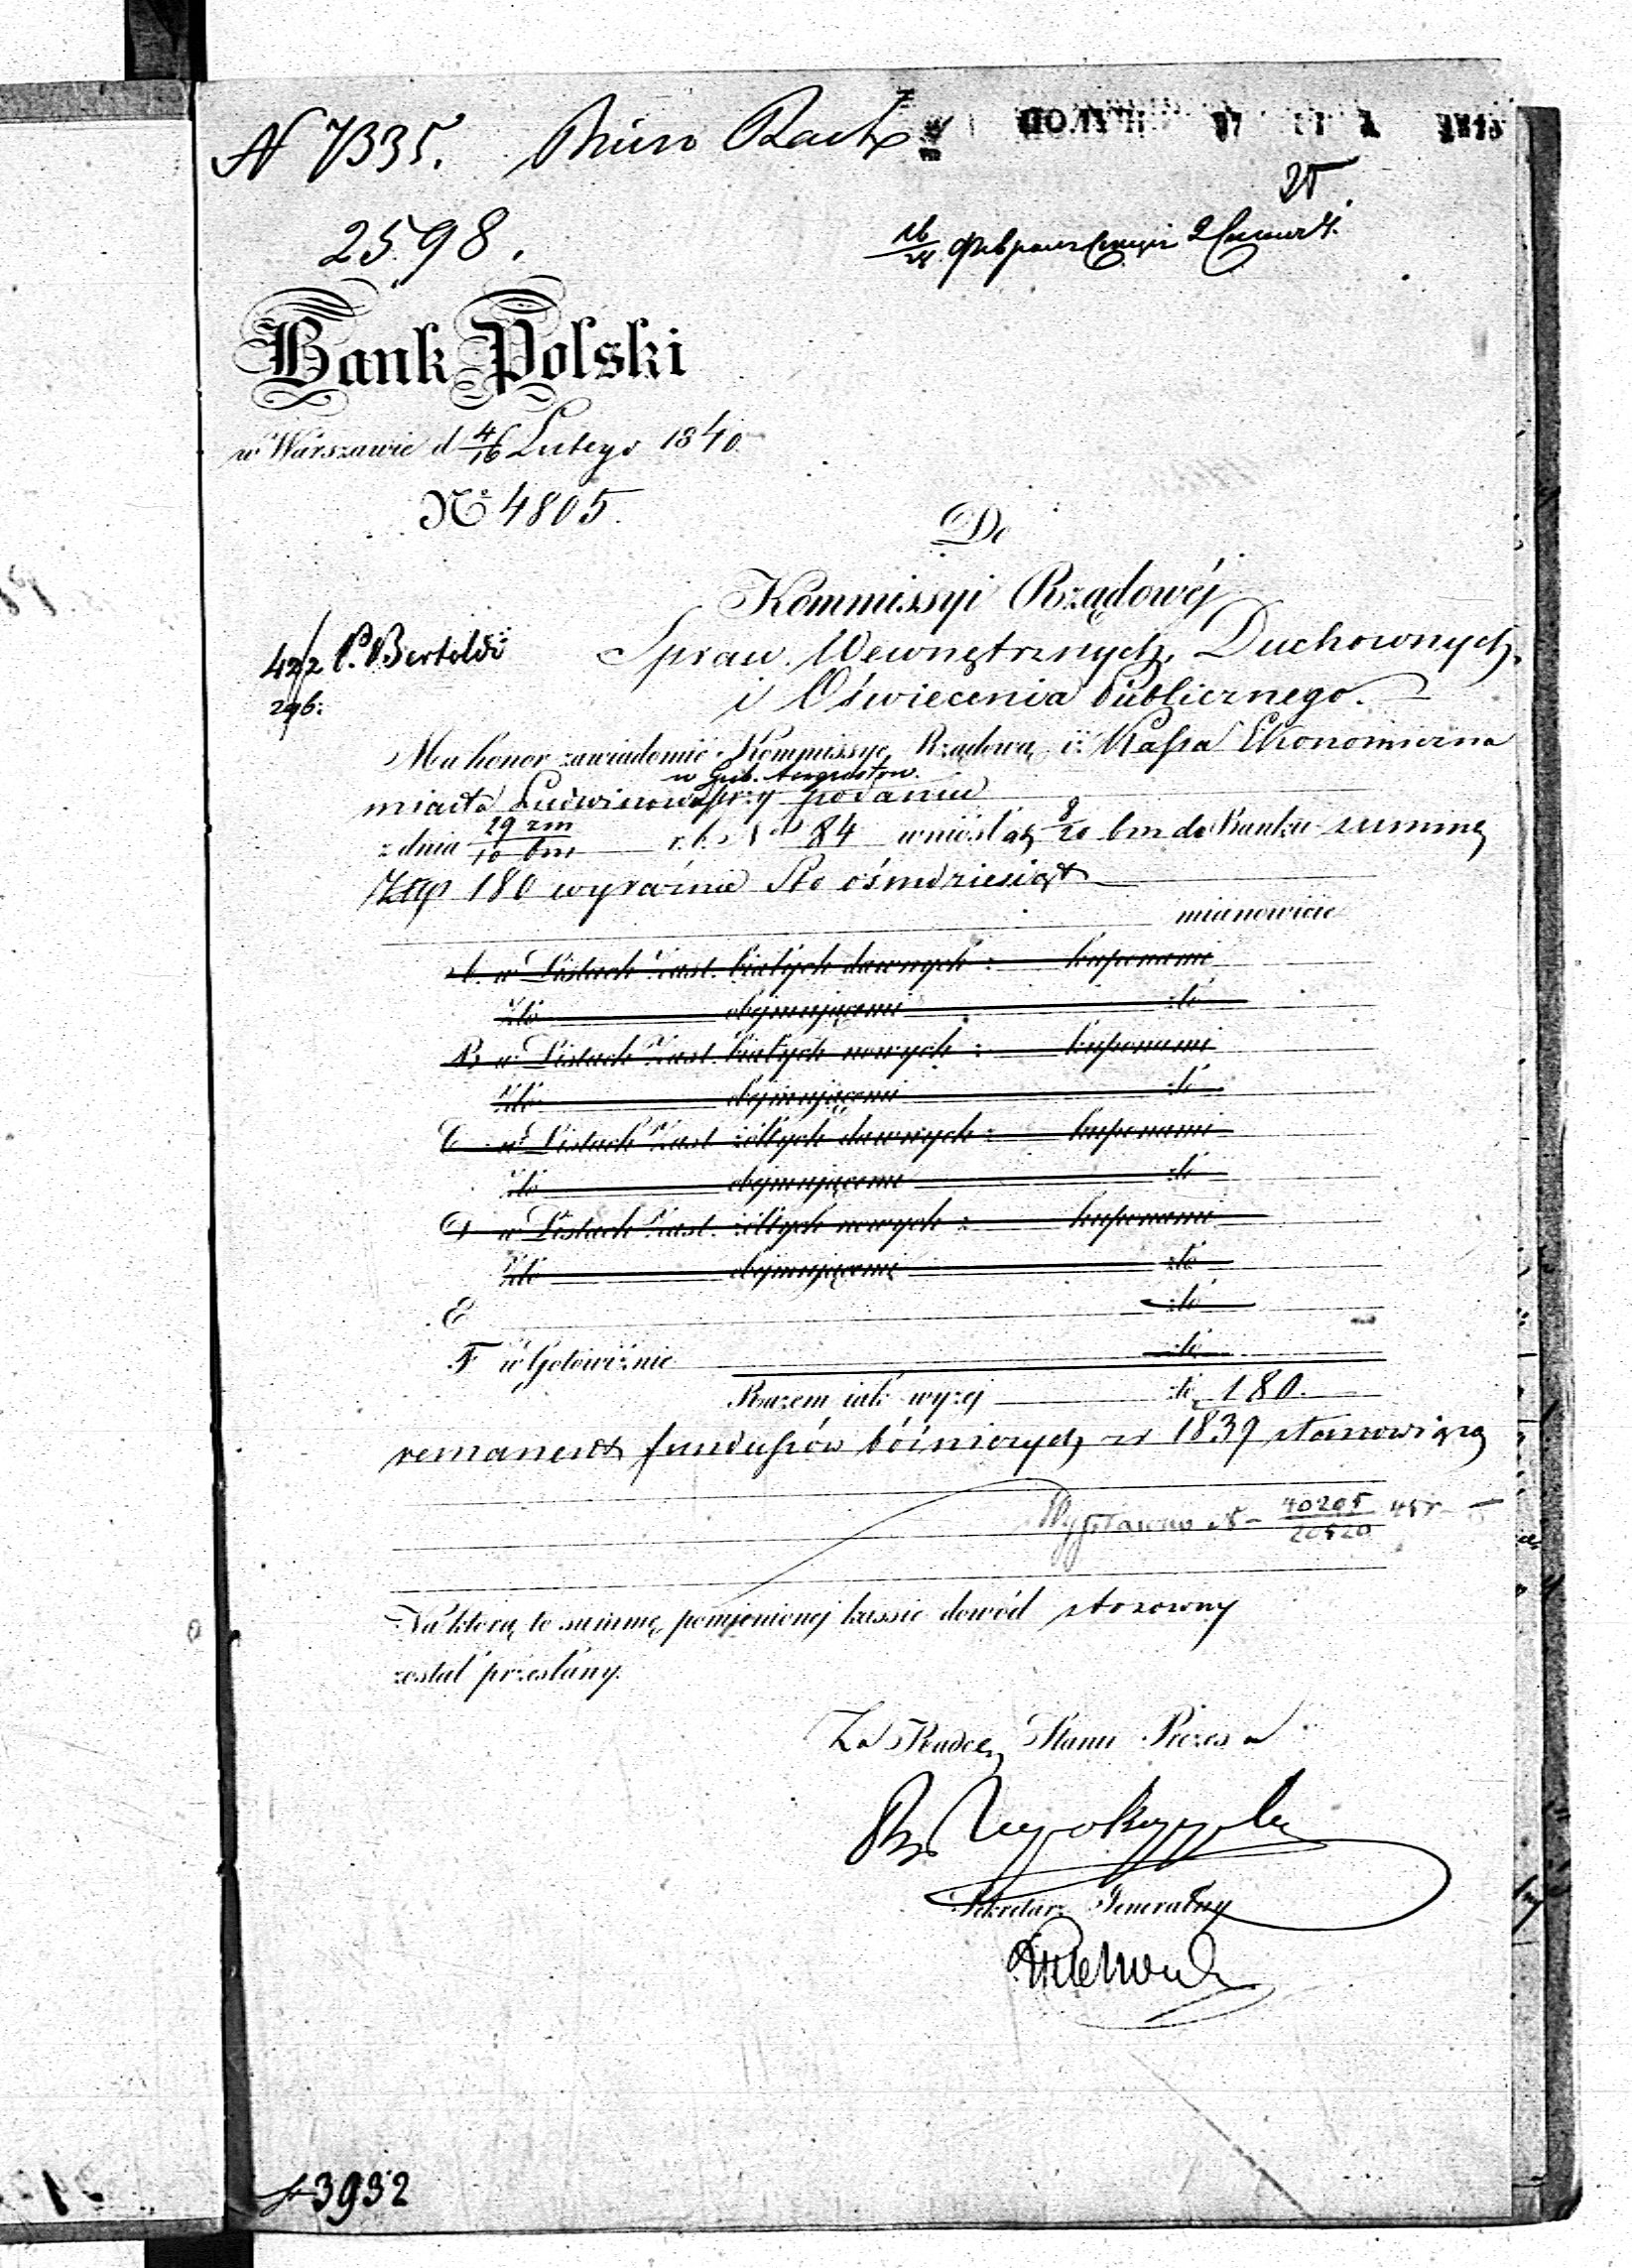 N 7335. Biuro Rach
25
2598.
16/28 Февраля Секція
Bank Polski
w Warszawie d 4/16 Lutego 1840
Nº 4805.
Do
Kommissyi Rządowéj
42/2 P. Bertoldi
Spraw Wewnętrznych, Duchownych,
296:
i Oświecenia Publicznego.
Ma honor zawiadomić Kommissyę Rządową iż Kassa Ekonomiczna
w Gub. Augustow.
miasta Ludwinowa przy podaniu
z dnia 29 zm/10 bm r. b. Nº 84 wniosła 8/20 bm do Banku summę
Złtp 180 wyraźnie Sto ośmdziesiąt
mianowicie
A. w Listach Zast. białych dawnych : kuponami
Złó obejmującemi złó
B w Listach Zast. białych nowych : kuponami
Złó obejmującemi złó
C w Listach Zast żółtych dawnych : kuponami
Złó obejmującemi złó
D w Listach Zast. żółtych nowych : kuponami
Złó obejmującemi złó
E złó
F w Gotowiźnie złó
Razem iak wyzej złó 180.
remanent funduszów bóżniczych z r 1839 stanowiącą
40295/20520
Na którą to summę pomienionej kassie dowód stosowny
został przesłany.
Za Radcę Stanu Prezesa
Sekretarz Generalny
3932